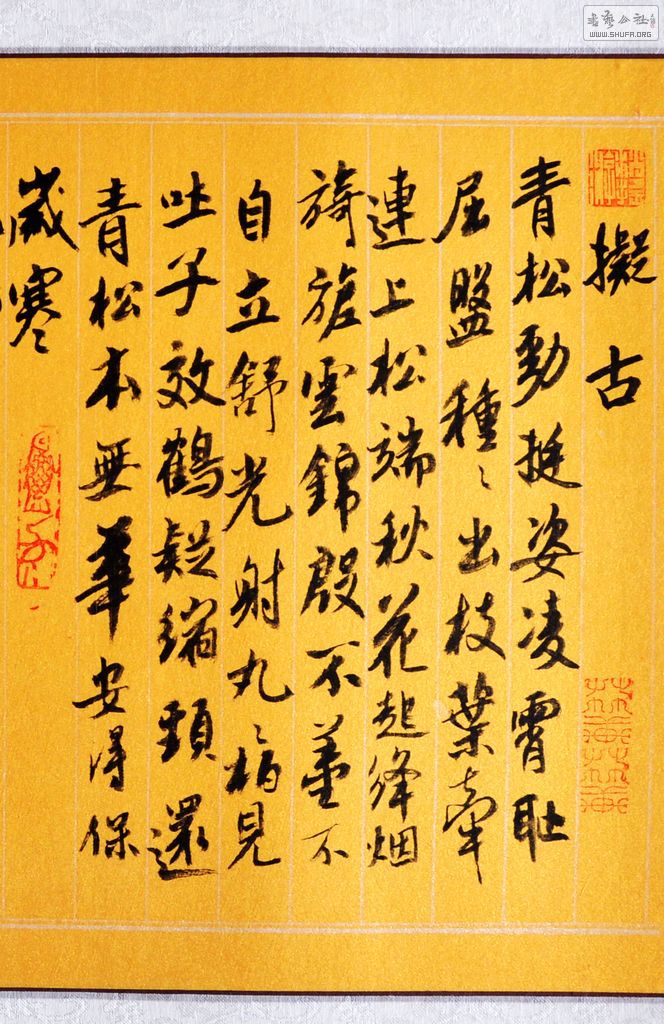 書藝公社
WWW.SHUFA.ORG
擬古
青松勁挺姿凌霄恥
屈盤種〻出枝葉牽
連上松端秋花起絳烟
旖旎雲錦殷不羞不
自立舒光射丸〻柏見
吐子效鶴疑縮頸還
青松本無華安得保
歲寒